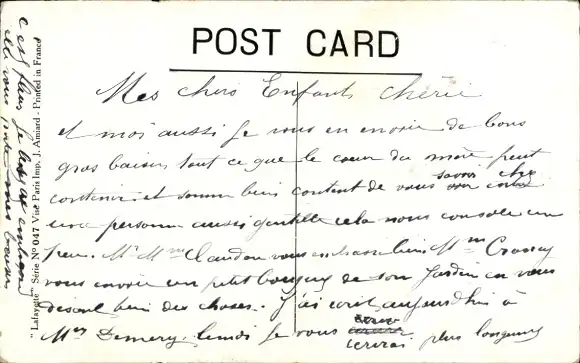 POST CARD
Mes chers Enfants chérie
et moi aussi Je vous en envoie de bons
gros baisers tout ce que le cœur du mère peut
contenir et somm bien content de vous savoir chez
une personne aussi gentille cela nous console un
peu. Mr Mme Claudon vous embrasse bien Mme
vous envoie un petit bouquet de son Jardin en vous
disant bien des choses. J'ai écrit aujourd'hui à
Mrs Demery. lundi Je vous
écrirai plus longuement
"Lafayette" Série No 047 Visé Paris Imp. J. Amiard - Printed in France
ces fleurs Je les ai